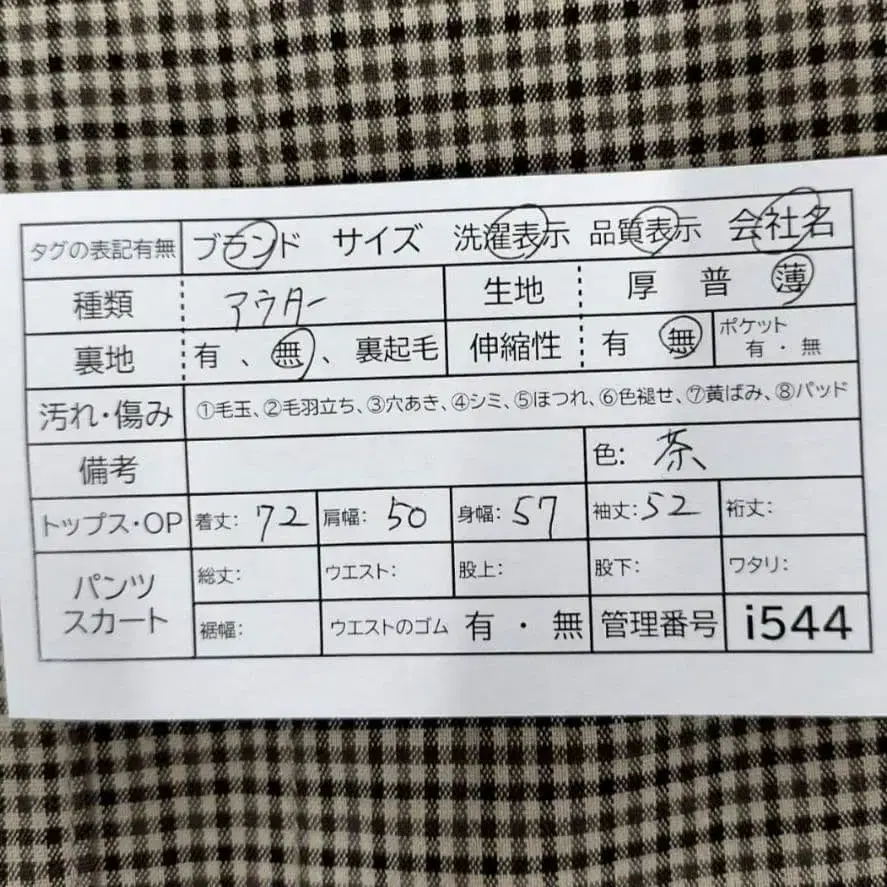 タグの表記有無 ブランド サイズ 洗濯表示 品質表示 会社名
種類 アウター 生地 厚 普 薄
裏地 有 、 無 、 裏起毛 伸縮性 有 無 ポケット 有 ・ 無
汚れ・傷み ①毛玉、②毛羽立ち、③穴あき、④シミ、⑤ほつれ、⑥色褪せ、⑦黄ばみ、⑧パッド
備考 色: 茶
トップス・OP 着丈: 72 肩幅: 50 身幅: 57 袖丈: 52 裄丈:
パンツ スカート 総丈: ウエスト: 股上: 股下: ワタリ:
裾幅: ウエストのゴム 有 ・ 無 管理番号 i544